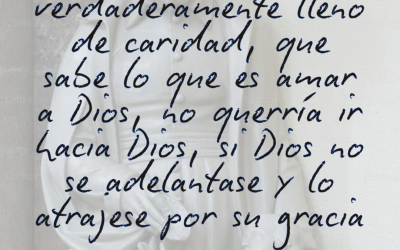 verdaderamente lleno
de caridad, que
sabe lo que es amar
a Dios, no querría ir
hacia Dios, si Dios no
se adelantase y lo
atrajese por su gracia